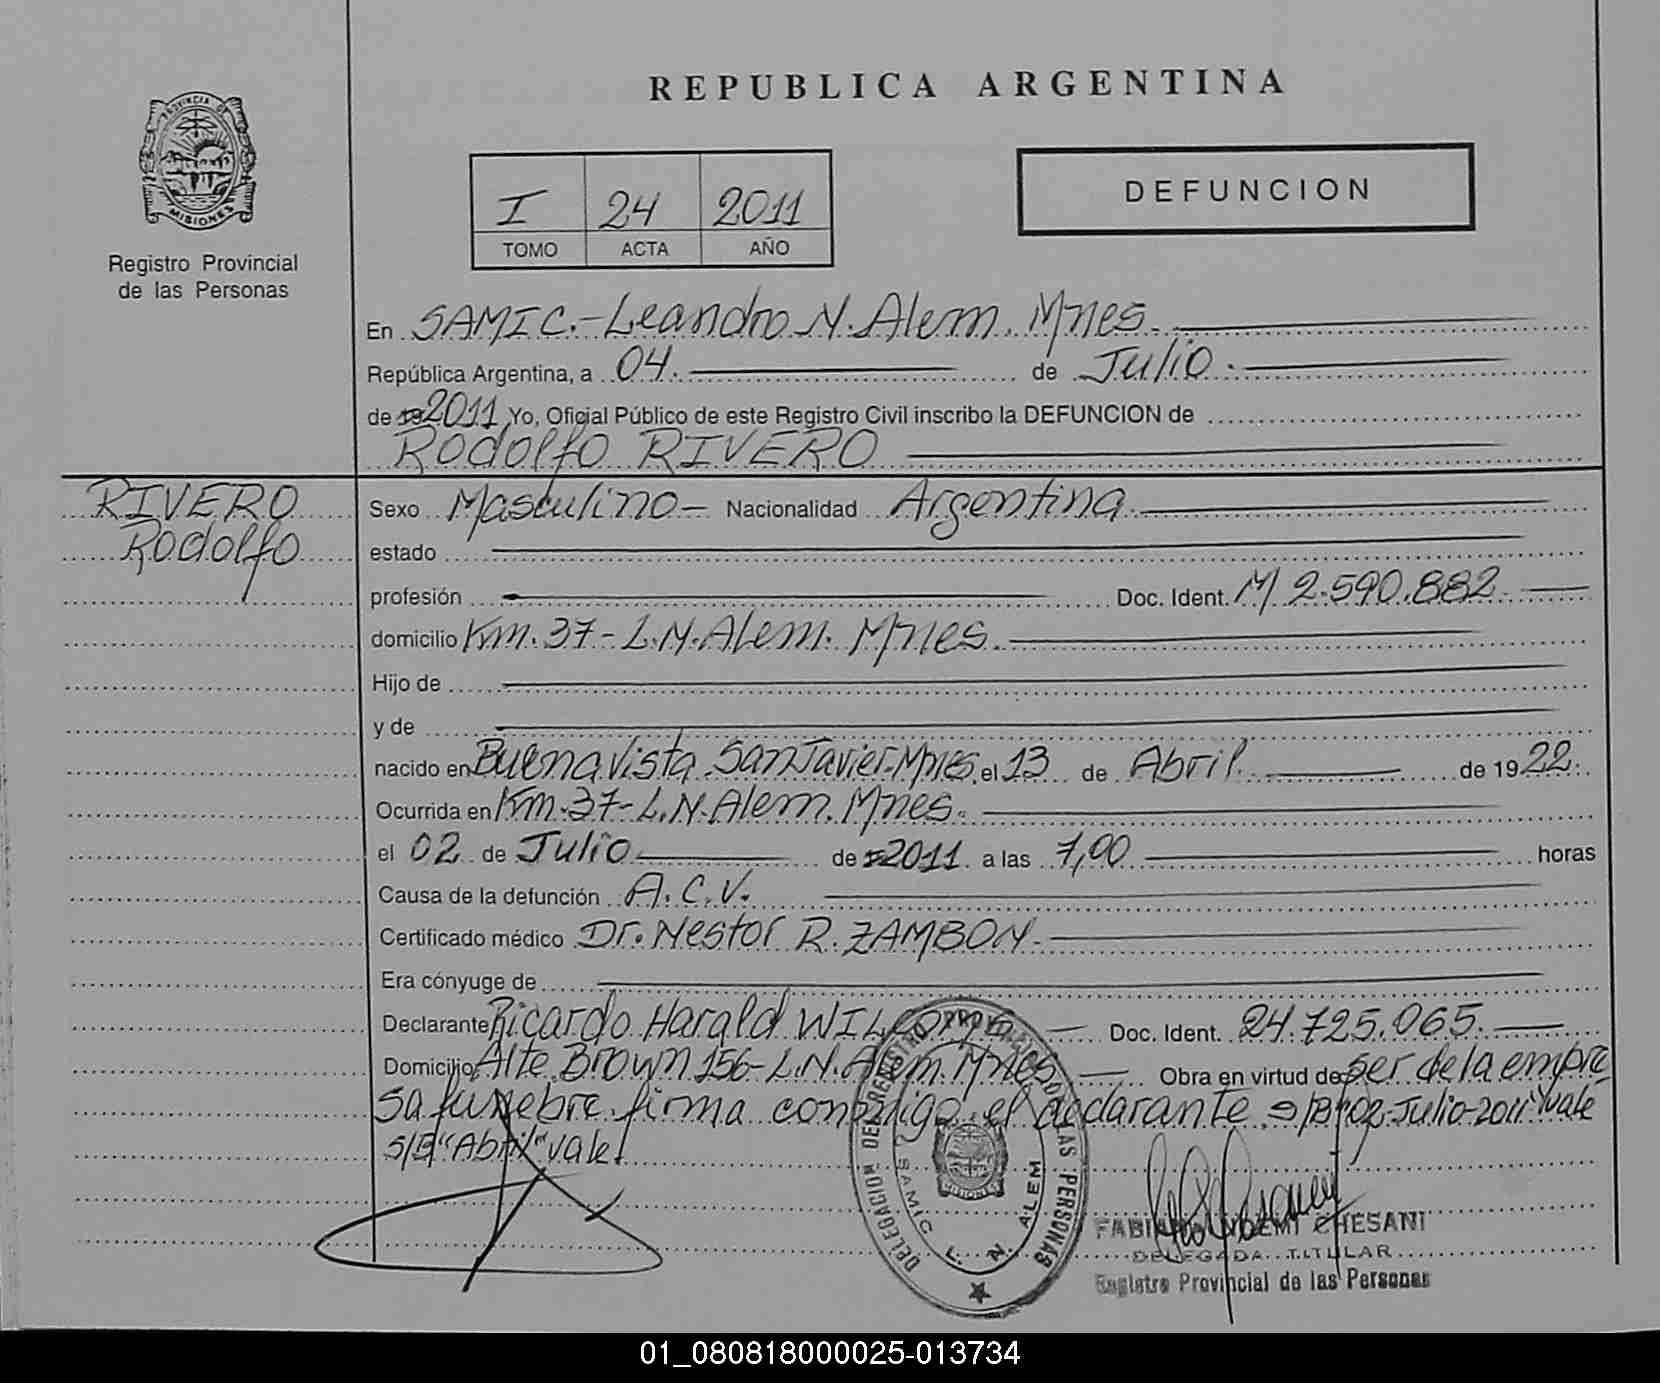 REPUBLICA ARGENTINA
PROVINCIA DE
MISIONES
Registro Provincial
de las Personas
I 24 2011
TOMO ACTA AÑO
DEFUNCION
En SAMIC.-Leandro N. Alem. Mnes.
República Argentina, a 04. de Julio.
de 19 2011 Yo, Oficial Público de este Registro Civil inscribo la DEFUNCION de
Rodolfo RIVERO
RIVERO
Rodolfo
Sexo Masculino- Nacionalidad Argentina.
estado
profesión Doc. Ident. M 2.590.882.
domicilio Km. 37- L.N. Alem. Mnes.
Hijo de
y de
nacido en Buena Vista San Javier-Mnes. el 13 de Abril. de 1922.
Ocurrida en Km. 37- L.N. Alem. Mnes.
el 02 de Julio de 2011 a las 7,00 horas
Causa de la defunción A.C.V.
Certificado médico Dr. Nestor R. ZAMBON.
Era cónyuge de
Declarante Ricardo Harald Doc. Ident. 24.725.065.
Domicilio Alte. Brown 156- L.N. Alem. Mnes. Obra en virtud de ser de la empre
sa funebre. firma conmigo el declarante. s/B "02-Julio-2011" vale
s/B "Abril" vale.
DELEGACION DEL REGISTRO PROVINCIAL DE LAS PERSONAS
SAMIC L. N. ALEM
MISIONES
NOEMI CHESANI
DELEGADA TITULAR
Registro Provincial de las Personas
01_080818000025-013734